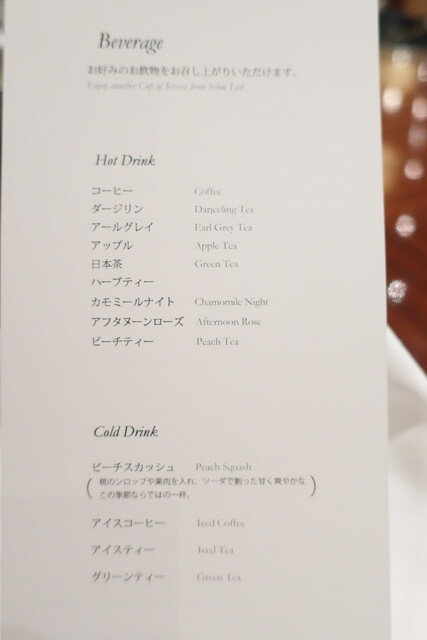 Beverage
お好みのお飲物をお召し上がりいただけます。
Enjoy another Cup of Service from below List
Hot Drink
コーヒー Coffee
ダージリン Darjeeling Tea
アールグレイ Earl Grey Tea
アップル Apple Tea
日本茶 Green Tea
ハーブティー
カモミールナイト Chamomile Night
アフタヌーンローズ Afternoon Rose
ピーチティー Peach Tea
Cold Drink
ピーチスカッシュ Peach Squash
(桃のシロップや果肉を入れ、ソーダで割った甘く爽やかな
この季節ならではの一杯。)
アイスコーヒー Iced Coffee
アイスティー Iced Tea
グリーンティー Green Tea